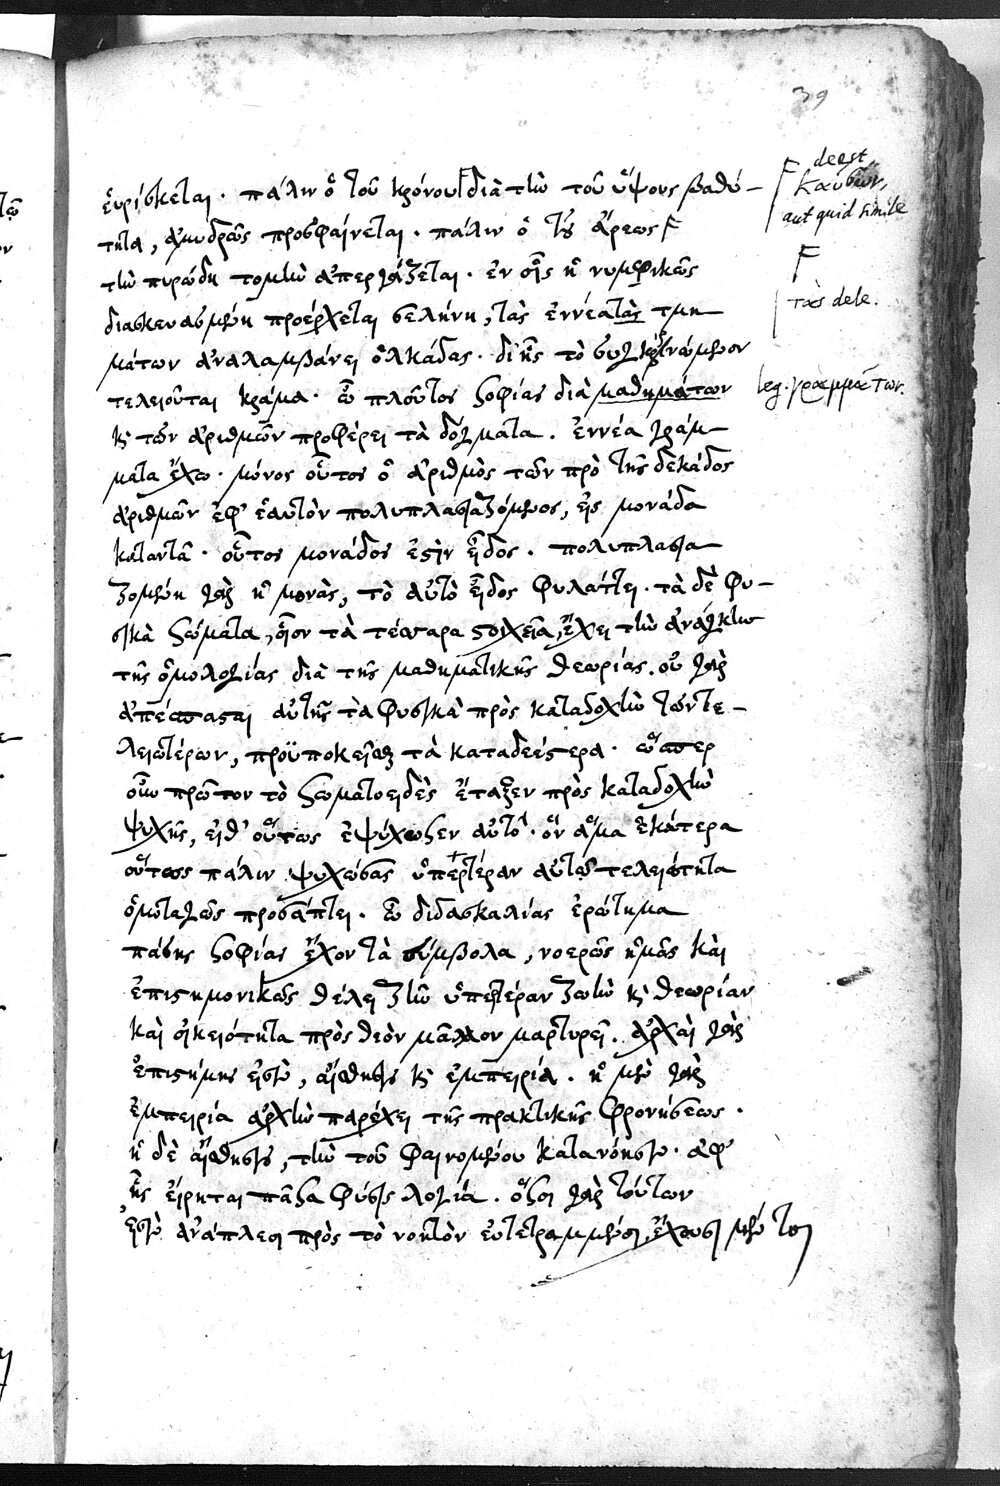 39
εὑρίσκεται. πάλιν ὁ τοῦ κρόνου διὰ τὴν τοῦ ὕψους βαθύ-
τητα, ἀμυδρῶς προσφαίνεται. πάλιν ὁ τῆς ἄρεως
τὴν πυρώδη τομὴν ἀπεργάζεται. ἐν οἷς ἡ νυμφικῶς
διασκευασμένη προέρχεται σελήνη, τὰς ἐννέα τὰς τμη
μάτων ἀναλαμβάνει ὁλκάδας. δι' ἧς τὸ συγκιρνώμενον
τελειοῦται κρᾶμα. ὦ πλοῦτος σοφίας διὰ μαθημάτων
κ τῶν ἀριθμῶν προφέρει τὰ δόγματα. ἐννέα γράμ-
ματα ἔχω. μόνος οὗτος ὁ ἀριθμὸς τῶν πρὸ τῆς δεκάδος
ἀριθμῶν ἐφ' ἑαυτὸν πολυπλασιαζόμενος, εἰς μονάδα
καταντᾷ. οὗτος μονάδος ἐστὶν εἶδος. πολυπλασια
ζομένη γὰρ ἡ μονὰς, τὸ αὐτὸ εἶδος φυλάττει. τὰ δὲ φυ-
σικὰ σώματα, οἷον τὰ τέσσαρα στοιχεῖα, ἔχει τὴν ἀνάγκην
τῆς ὁμολογίας διὰ τῆς μαθηματικῆς θεωρίας. οὐ γὰρ
ἀπέσπασται αὐτῆς τὰ φυσικὰ πρὸς καταδοχὴν τῶν τε-
λειωτέρων, προϋποκεῖσθαι τὰ καταδεέστερα. ὥσπερ
οὖν πρῶτον τὸ σωματοειδὲς ἔταξεν πρὸς καταδοχὴν
ψυχῆς, εἶθ' οὕτως ἐψύχωσεν αὐτό. ὃν ἅμα ἑκάτερα
οὕτως πάλιν ψυχώσας ὑπερτέραν αὐτῷ τελειότητα
ὁμοταγῶς προσάπτει. ὦ διδασκαλίας ἐρώτημα
πάσης σοφίας ἔχον τὰ σύμβολα, νοερῶς ἡμᾶς καὶ
ἐπιστημονικῶς θέλει ζῆν ὑπερτέραν ζωὴν κ θεωρίαν
καὶ οἰκειότητα πρὸς θεὸν μᾶλλον μαρτυρεῖ. ἀρχαὶ γὰρ
ἐπιστήμης εἰσὶν, αἴσθησις κ ἐμπειρία. ἡ μὲν γὰρ
ἐμπειρία ἀρχὴν παρέχει τῆς πρακτικῆς φρονήσεως.
ἡ δὲ αἴσθησις, τὴν τοῦ φαινομένου κατανόησιν. ἀφ'
ἧς εἴρηται πᾶσα φύσις λογία. ὅσοι γὰρ τούτων
εἰσὶν ἀνάπλεοι πρὸς τὸ νοητὸν ἐντετραμμένοι, ἔχουσι μέν τοι
F deest
καύσων,
aut quid simile
F
τὰς dele.
leg. γραμμάτων.